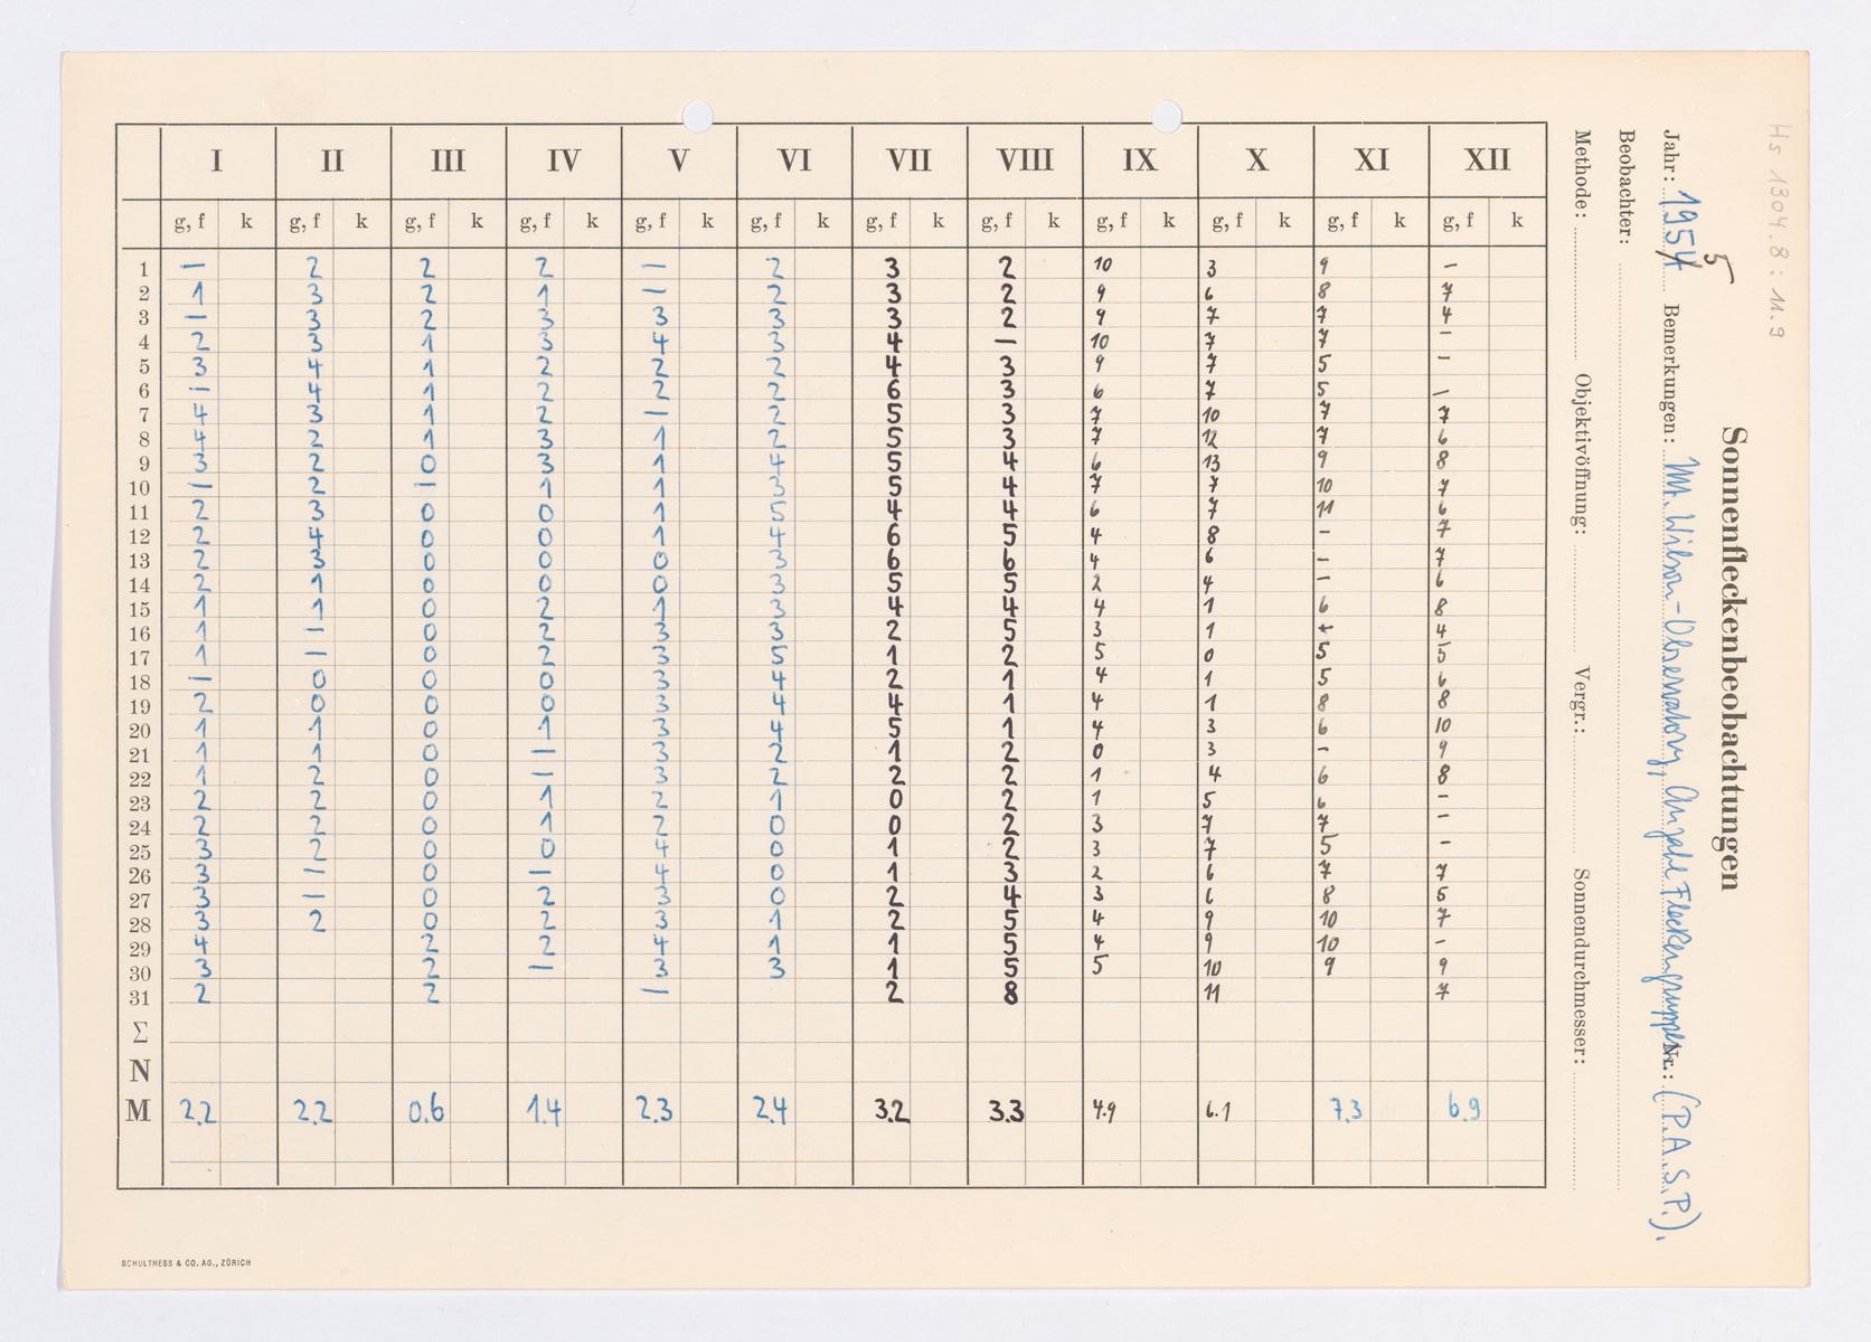 Hs 1304.8 : 11.9
Sonnenfleckenbeobachtungen
Jahr: 1954 5 Bemerkungen: Mt. Wilson-Observatory, Anzahl Fleckengruppen Nr.: (P.A.S.P.).
Beobachter:
Methode: Objektivöffnung: Vergr.: Sonnendurchmesser:
I II III IV V VI VII VIII IX X XI XII
g, f k g, f k g, f k g, f k g, f k g, f k g, f k g, f k g, f k g, f k g, f k g, f k
1 — 2 2 2 — 2 3 2 10 3 9 –
2 1 3 2 1 — 2 3 2 9 6 8 7
3 — 3 2 3 3 3 3 2 9 7 7 4
4 2 3 1 3 4 3 4 — 10 7 7 –
5 3 4 1 2 2 2 4 3 9 7 5 –
6 — 4 1 2 2 2 6 3 6 7 5 –
7 4 3 1 2 — 2 5 3 7 10 7 7
8 4 2 1 3 1 2 5 3 7 12 7 6
9 3 2 0 3 1 4 5 4 6 13 9 8
10 — 2 — 1 1 3 5 4 7 7 10 7
11 2 3 0 0 1 5 4 4 6 7 11 6
12 2 4 0 0 1 4 6 5 4 8 – 7
13 2 3 0 0 0 3 6 6 4 6 – 7
14 2 1 0 0 0 3 5 5 2 4 – 6
15 1 1 0 2 1 3 4 4 4 1 6 8
16 1 — 0 2 3 3 2 5 3 1 + 4
17 1 — 0 2 3 5 1 2 5 0 5 5
18 — 0 0 0 3 4 2 1 4 1 5 6
19 2 0 0 0 3 4 4 1 4 1 8 8
20 1 1 0 1 3 4 5 1 4 3 6 10
21 1 1 0 — 3 2 1 2 0 3 – 9
22 1 2 0 — 3 2 2 2 1 4 6 8
23 2 2 0 1 2 1 0 2 1 5 6 –
24 2 2 0 1 2 0 0 2 3 7 7 –
25 3 2 0 0 4 0 1 2 3 7 5 –
26 3 — 0 — 4 0 1 3 2 6 7 7
27 3 — 0 2 3 0 2 4 3 6 8 5
28 3 2 0 2 3 1 2 5 4 9 10 7
29 4 2 2 4 1 1 5 4 9 10 –
30 3 2 — 3 3 1 5 5 10 9 9
31 2 2 — 2 8 11 7
Σ
N
M 2.2 2.2 0.6 1.4 2.3 2.4 3.2 3.3 4.9 6.1 7.3 6.9
SCHULTHESS & CO. AG., ZÜRICH